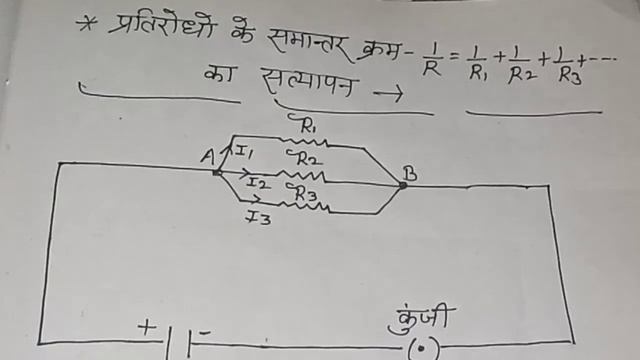 * प्रतिरोधों के समान्तर क्रम - 1/R = 1/R1 + 1/R2 + 1/R3 + ---
का सत्यापन →
R1
A I1
R2
B
I2
R3
I3
कुंजी
+ -